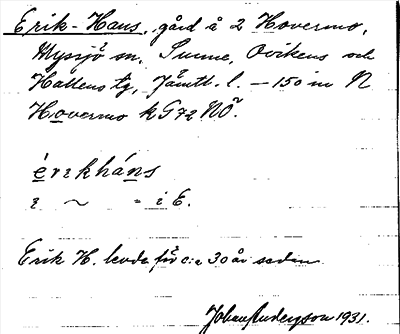 Erik-Hans, gård å 2 Hovermo,
Myssjö sn, Sunne, Ovikens och
Hallens tg, Jämtl. l. – 150 m N
Hovermo k G72 NÖ.
érikháns
i ~ - i E.
Erik H. levde för c:a 30 år sedan
Johan Anderzson 1931.